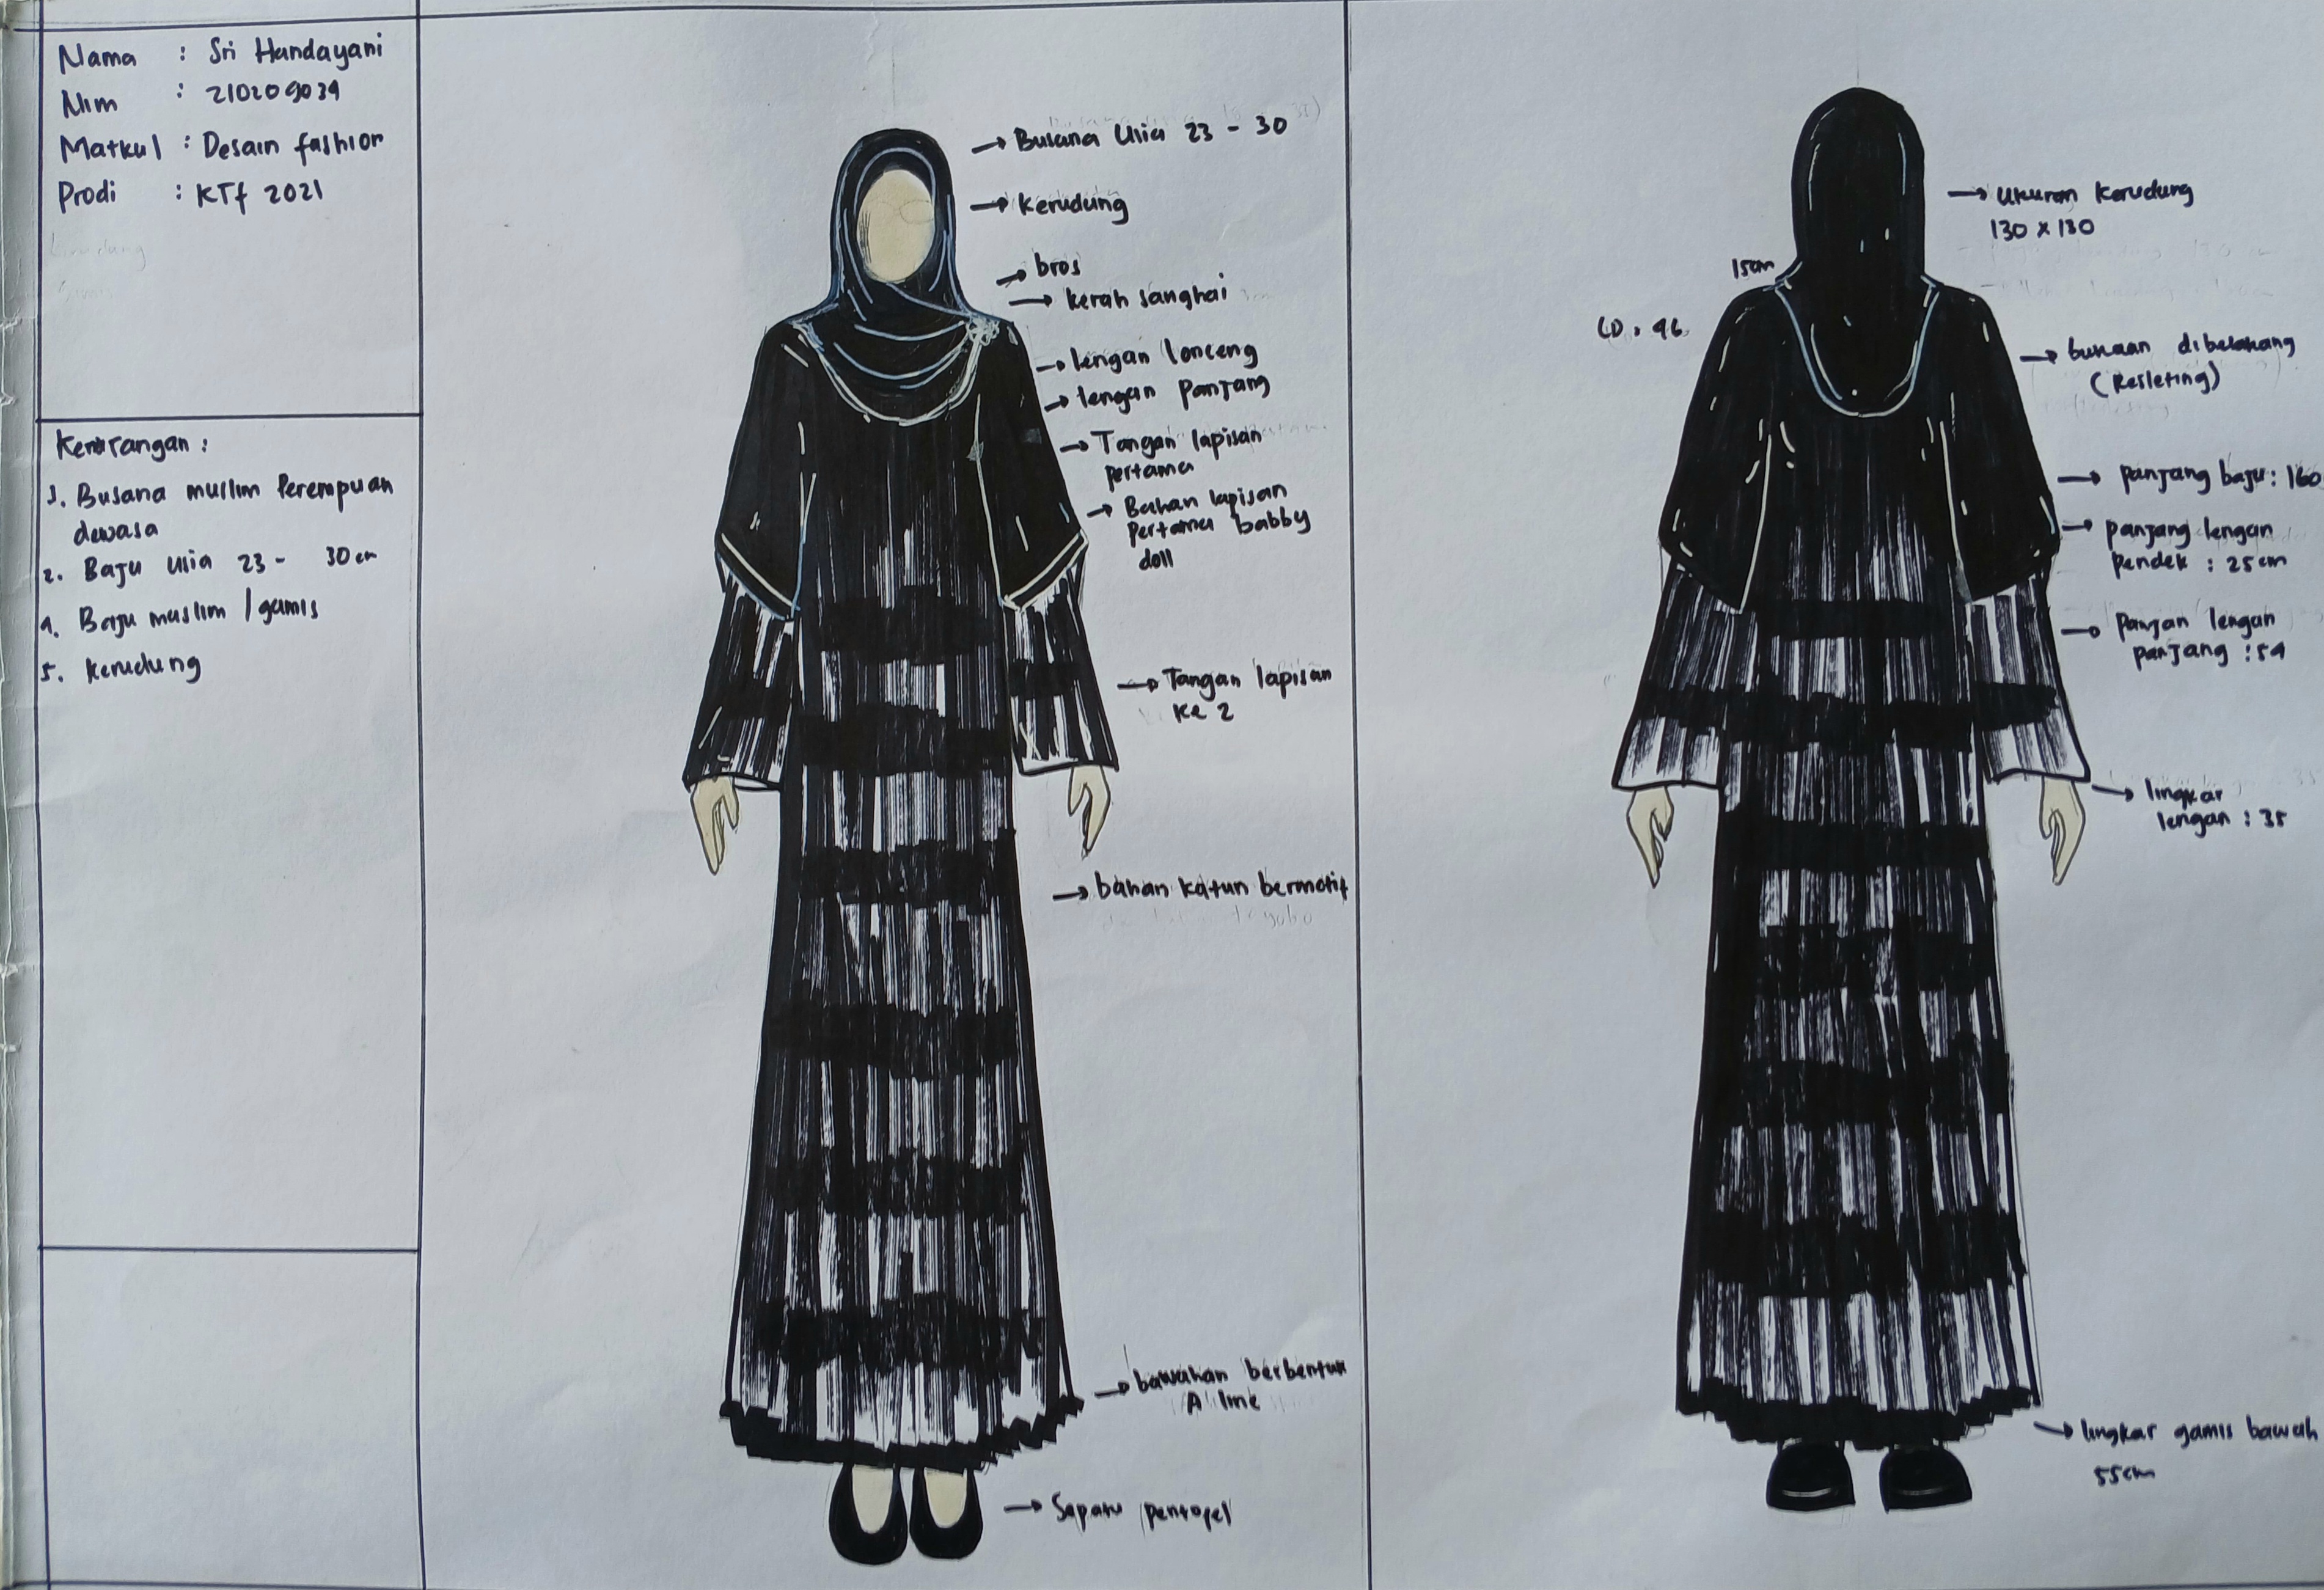 Nama : Sri Handayani
Nim : 210209039
Matkul : Desain fashion
Prodi : KTf 2021
Keterangan :
1. Busana muslim Perempuan
dewasa
2. Baju usia 23 - 30 cm
4. Baju muslim / gamis
5. kerudung
→ Busana Usia 23 - 30
→ kerudung
→ bros
→ kerah sanghai
→ lengan lonceng
→ lengan panjang
→ Tangan lapisan
pertama
→ Bahan lapisan
Pertama babby
doll
→ Tangan lapisan
ke 2
→ bahan katun bermotif
→ bawahan berbentuk
A line
→ Sepatu pentofel
→ Ukuran kerudung
130 x 130
15cm
LD . 96
→ bukaan dibelakang
(Resleting)
→ panjang baju : 160
→ panjang lengan
pendek : 25cm
→ panjan lengan
panjang : 54
→ lingkar
lengan : 35
→ lingkar gamis bawah
55cm